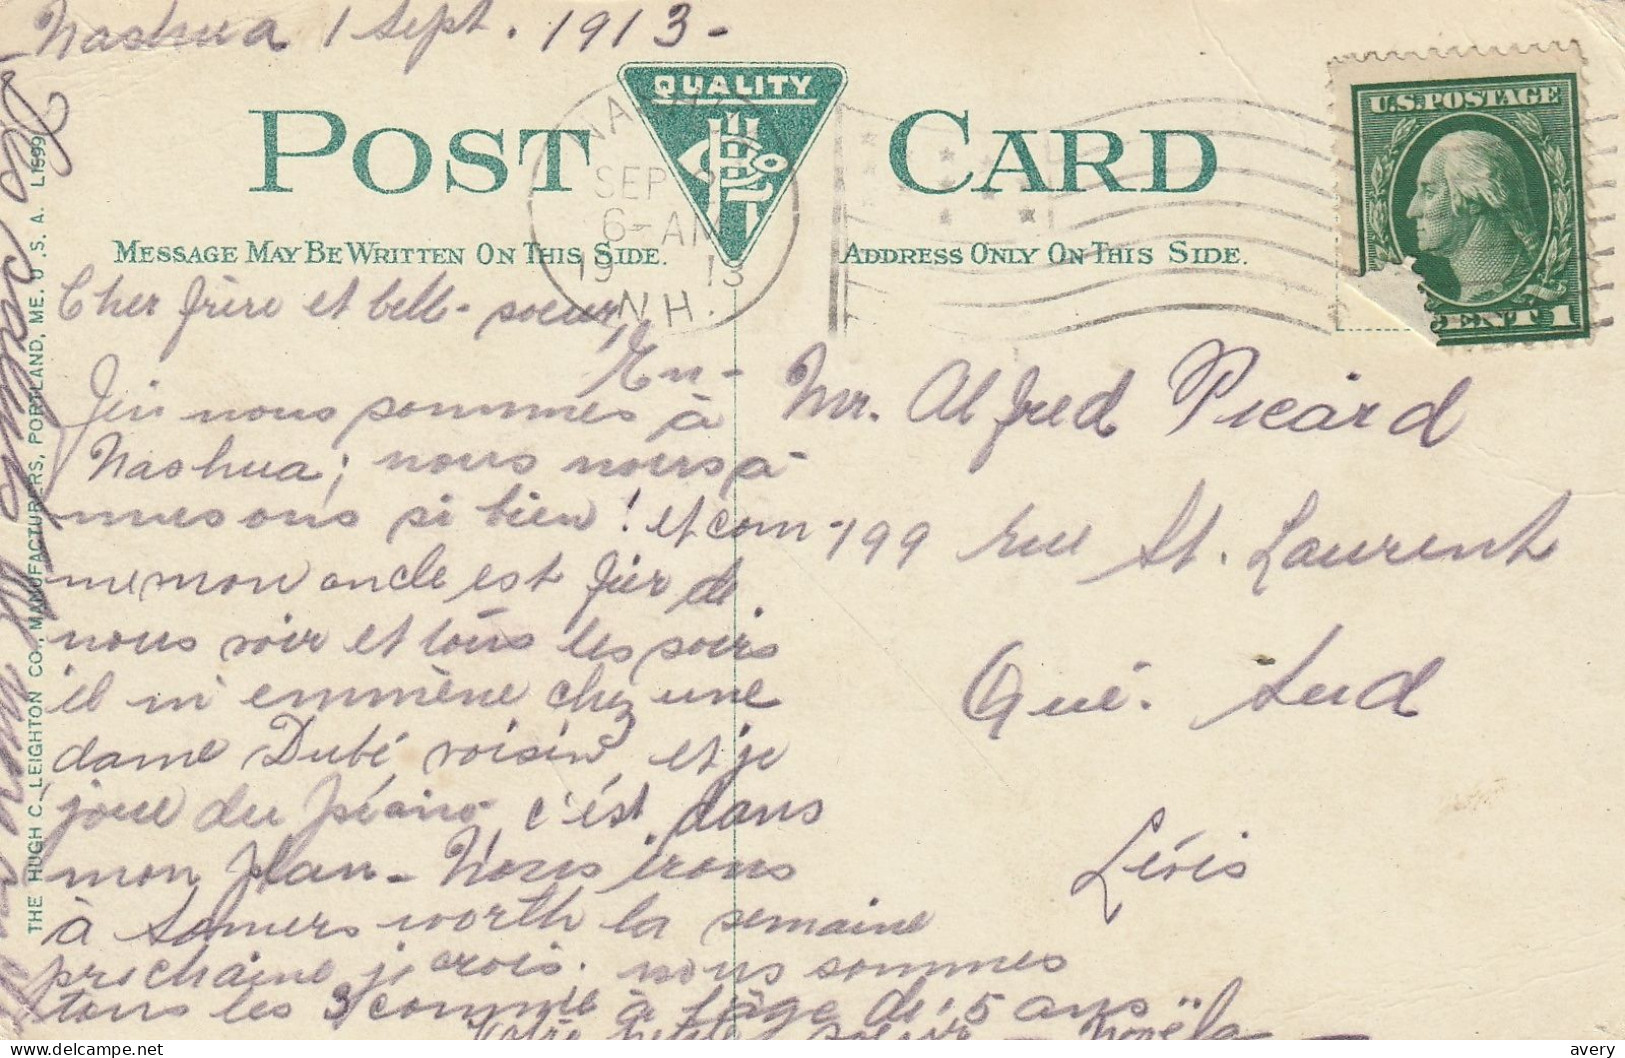 Nashua 1 Sept. 1913-
POST CARD
QUALITY
U.S. POSTAGE
SEP
6-AM
19 13
N.H.
MESSAGE MAY BE WRITTEN ON THIS SIDE.
ADDRESS ONLY ON THIS SIDE.
Cher frère et bell-soeur,
En-
fin nous sommes à
Nashua; nous nous a-
musons si bien! et com-
me mon oncle est fier de
nous voir et tous les soirs
il m'emmène chez une
dame Dubé voisin et je
joue du piano c'ést dans
mon plan- Nous irons
à Somersworth la semaine
prochaine je crois. nous sommes
tous les 3 comme à l'âge de 15 ans
Votre petite soeur -
Mr. Alfred Picard
199 rue St. Laurent
Qué. Sud
Lévis
THE HUGH C. LEIGHTON CO., MANUFACTURERS, PORTLAND, ME. U.S.A. L1699
avery
delcampe.net